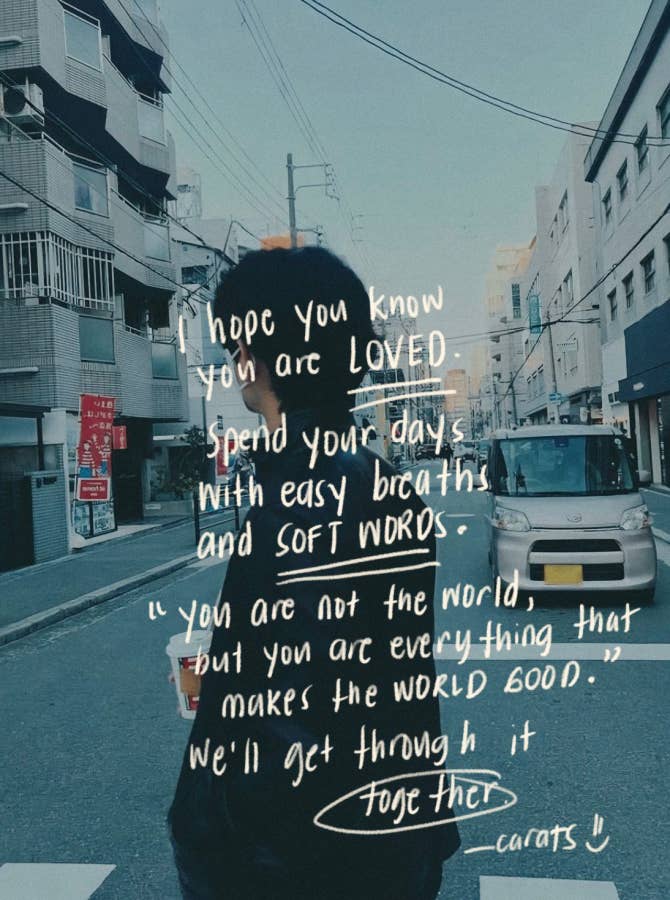 I hope you know
you are LOVED.
spend your days
with easy breaths
and SOFT WORDS.
"you are not the world,
but you are everything that
makes the WORLD GOOD."
We'll get through it
together
_carats